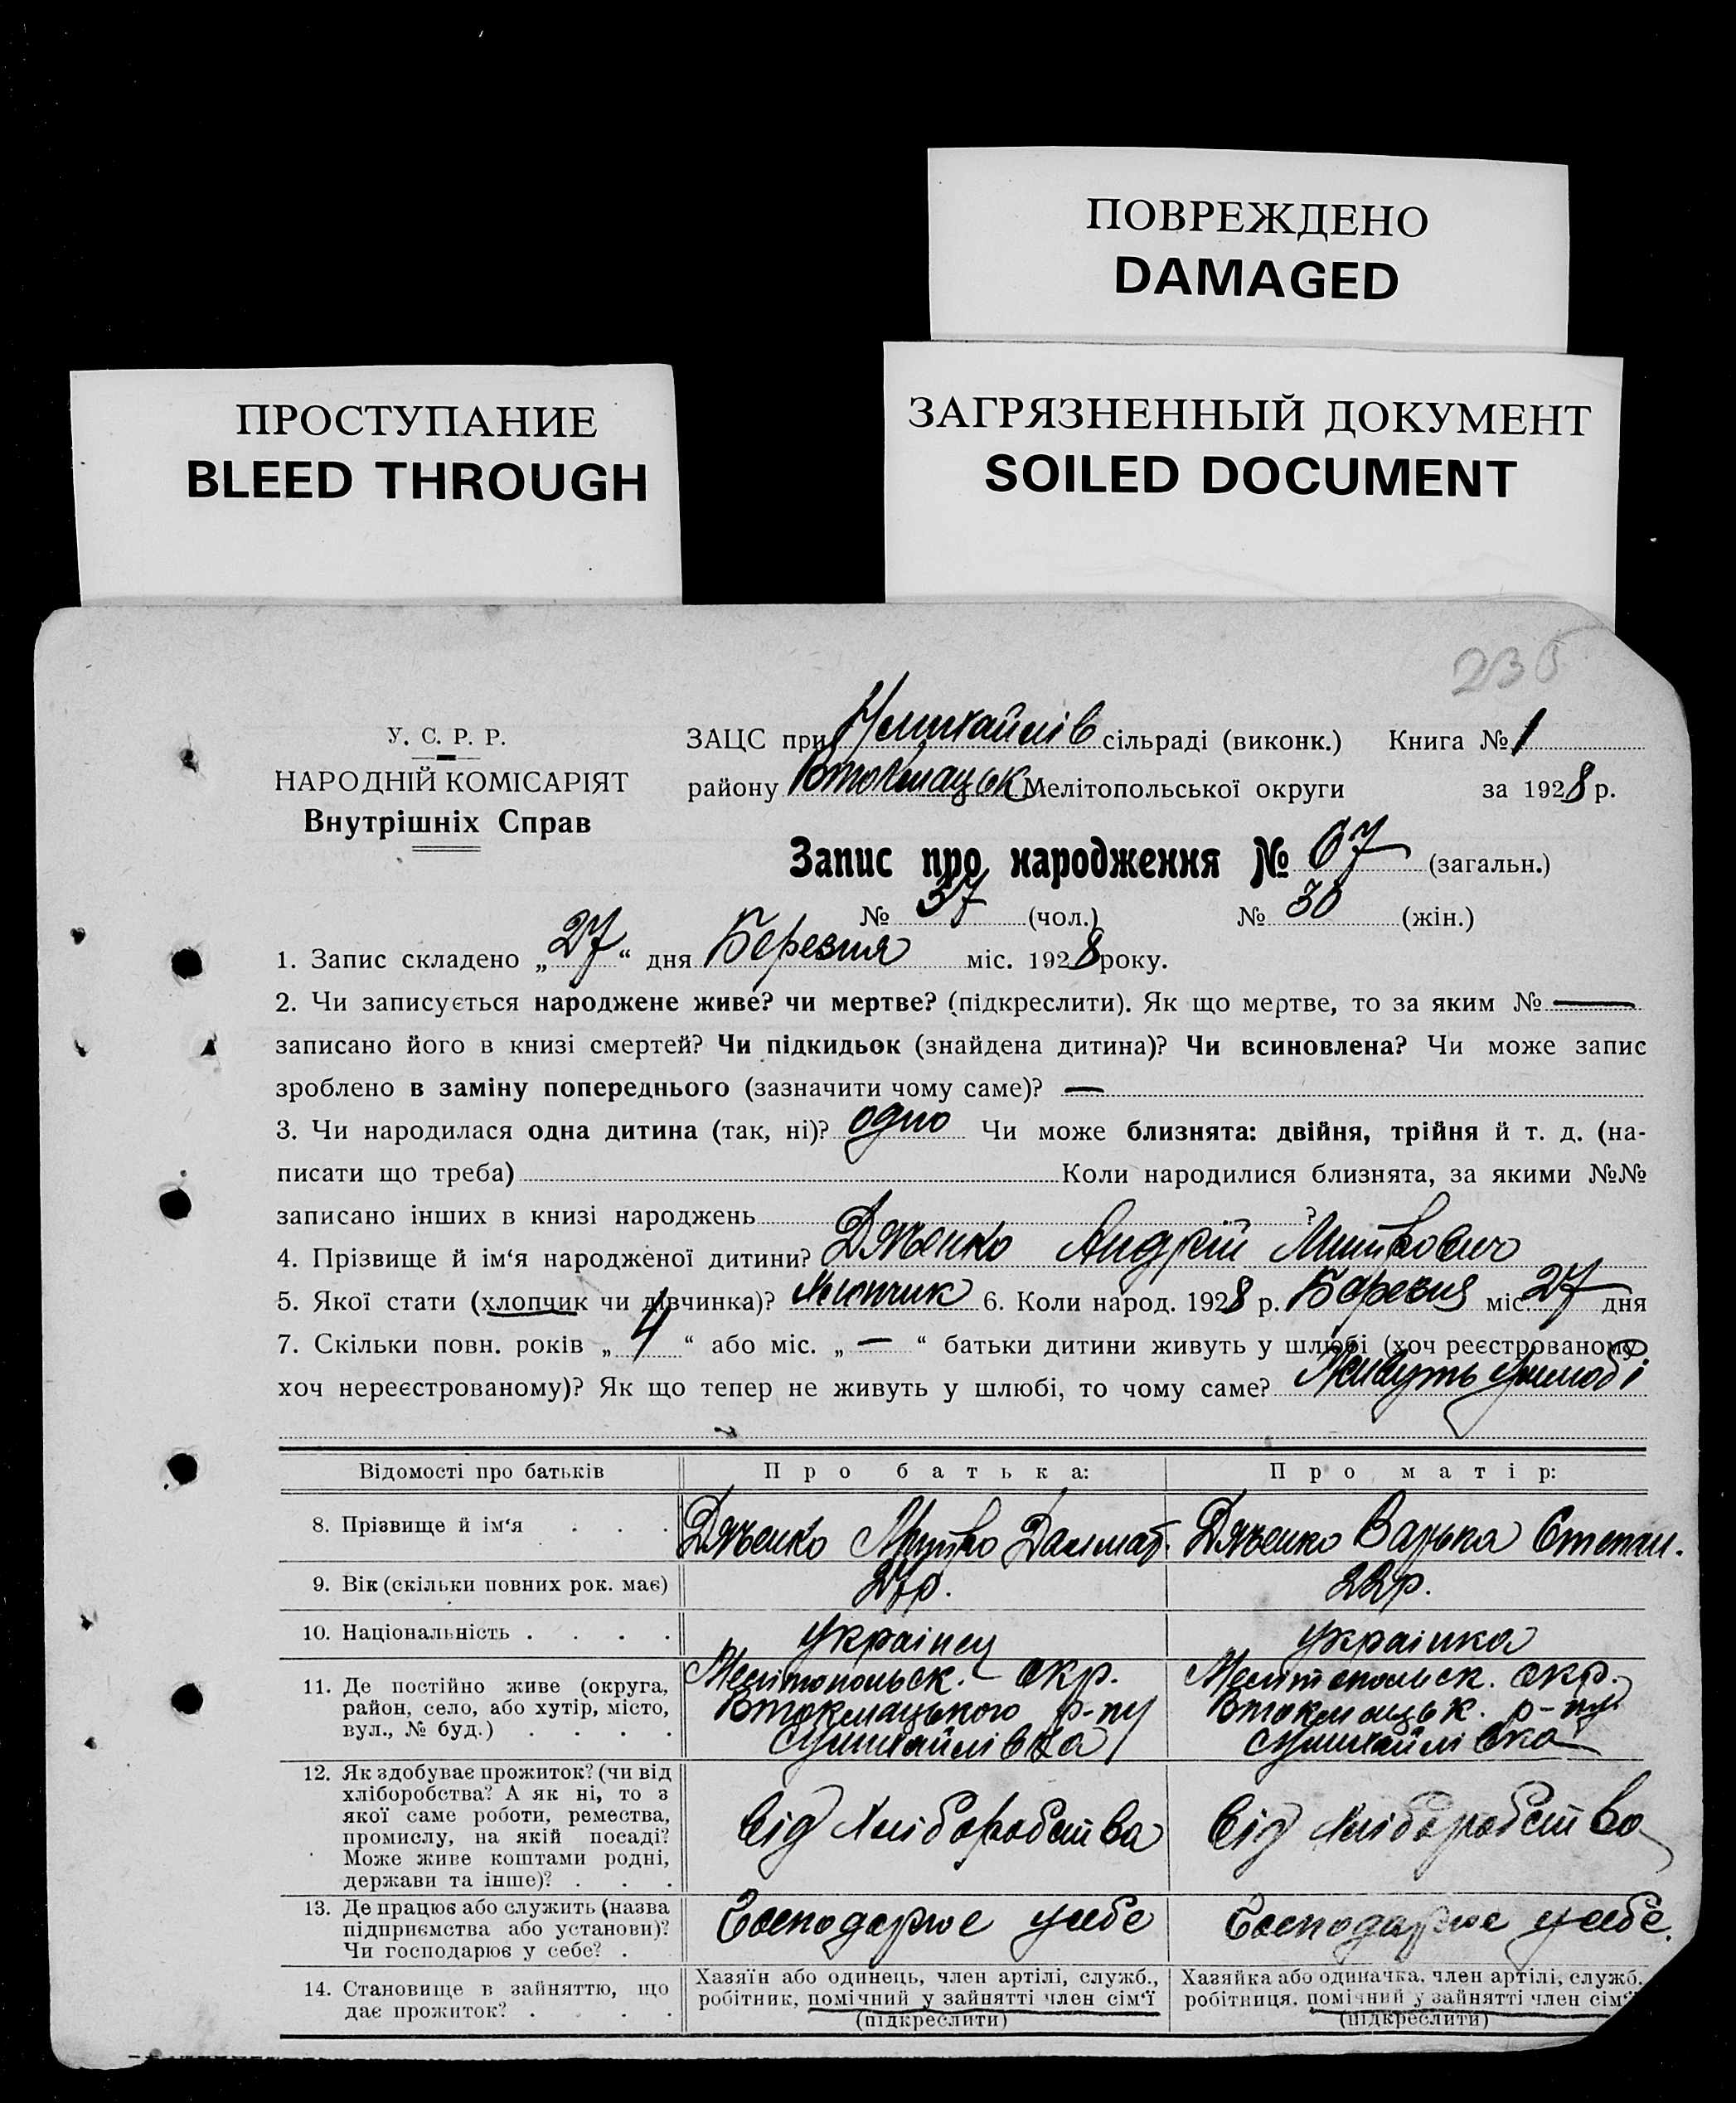 ПОВРЕЖДЕНО
DAMAGED
ПРОСТУПАНИЕ
BLEED THROUGH
ЗАГРЯЗНЕННЫЙ ДОКУМЕНТ
SOILED DOCUMENT
У. С. Р. Р.
НАРОДНІЙ КОМІСАРІЯТ
Внутрішніх Справ
ЗАЦС при сільраді (виконк.) Книга № 1
району Втокмацьк Мелітопольської округи за 1928 р.
Запис про народження № 67 (загальн.)
№ 37 (чол.) № 30 (жін.)
1. Запис складено „27“ дня Березня міс. 1928 року.
2. Чи записується народжене живе? чи мертве? (підкреслити). Як що мертве, то за яким № —
записано його в книзі смертей? Чи підкидьок (знайдена дитина)? Чи всиновлена? Чи може запис
зроблено в заміну попереднього (зазначити чому саме)? —
3. Чи народилася одна дитина (так, ні)? одно Чи може близнята: двійня, трійня й т. д. (на-
писати що треба) Коли народилися близнята, за якими №№
записано інших в книзі народжень ?
4. Прізвище й ім‘я народженої дитини? Дяченко Андрій
5. Якої стати (хлопчик чи дівчинка)? Хлопчик 6. Коли народ. 1928 р. Березня міс. 27 дня
7. Скільки повн. років „4“ або міс. „—“ батьки дитини живуть у шлюбі (хоч реєстрованому,
хоч нереєстрованому)? Як що тепер не живуть у шлюбі, то чому саме? Живуть ушлюбі
Відомості про батьків Про батька: Про матір:
8. Прізвище й ім‘я . . . Дяченко Дяченко Варька Степан.
9. Вік (скільки повних рок. має) 27р. 22р.
10. Національність . . . . українец українка
11. Де постійно живе (округа, Мелітопольск. окр. Мелітопольск. окр.
район, село, або хутір, місто, Втокмацького р-ну Втокмацьк. р-ну
вул., № буд.) . . . .
12. Як здобуває прожиток? (чи від
хліборобства? А як ні, то з
якої саме роботи, ремества, Від хліборобства Від хліборобства
промислу, на якій посаді?
Може живе коштами родні,
держави та інше)? . . .
13. Де працює або служить (назва Господарює усебе Господарює усебе.
підприємства або установи)?
Чи господарює у себе? .
14. Становище в зайняттю, що Хазяїн або одинець, член артілі, служб., Хазяйка або одиначка, член артілі, служб.
дає прожиток? . . . робітник, помічний у зайнятті член сім‘ї робітниця, помічний у зайнятті член сім‘ї
(підкреслити) (підкреслити)